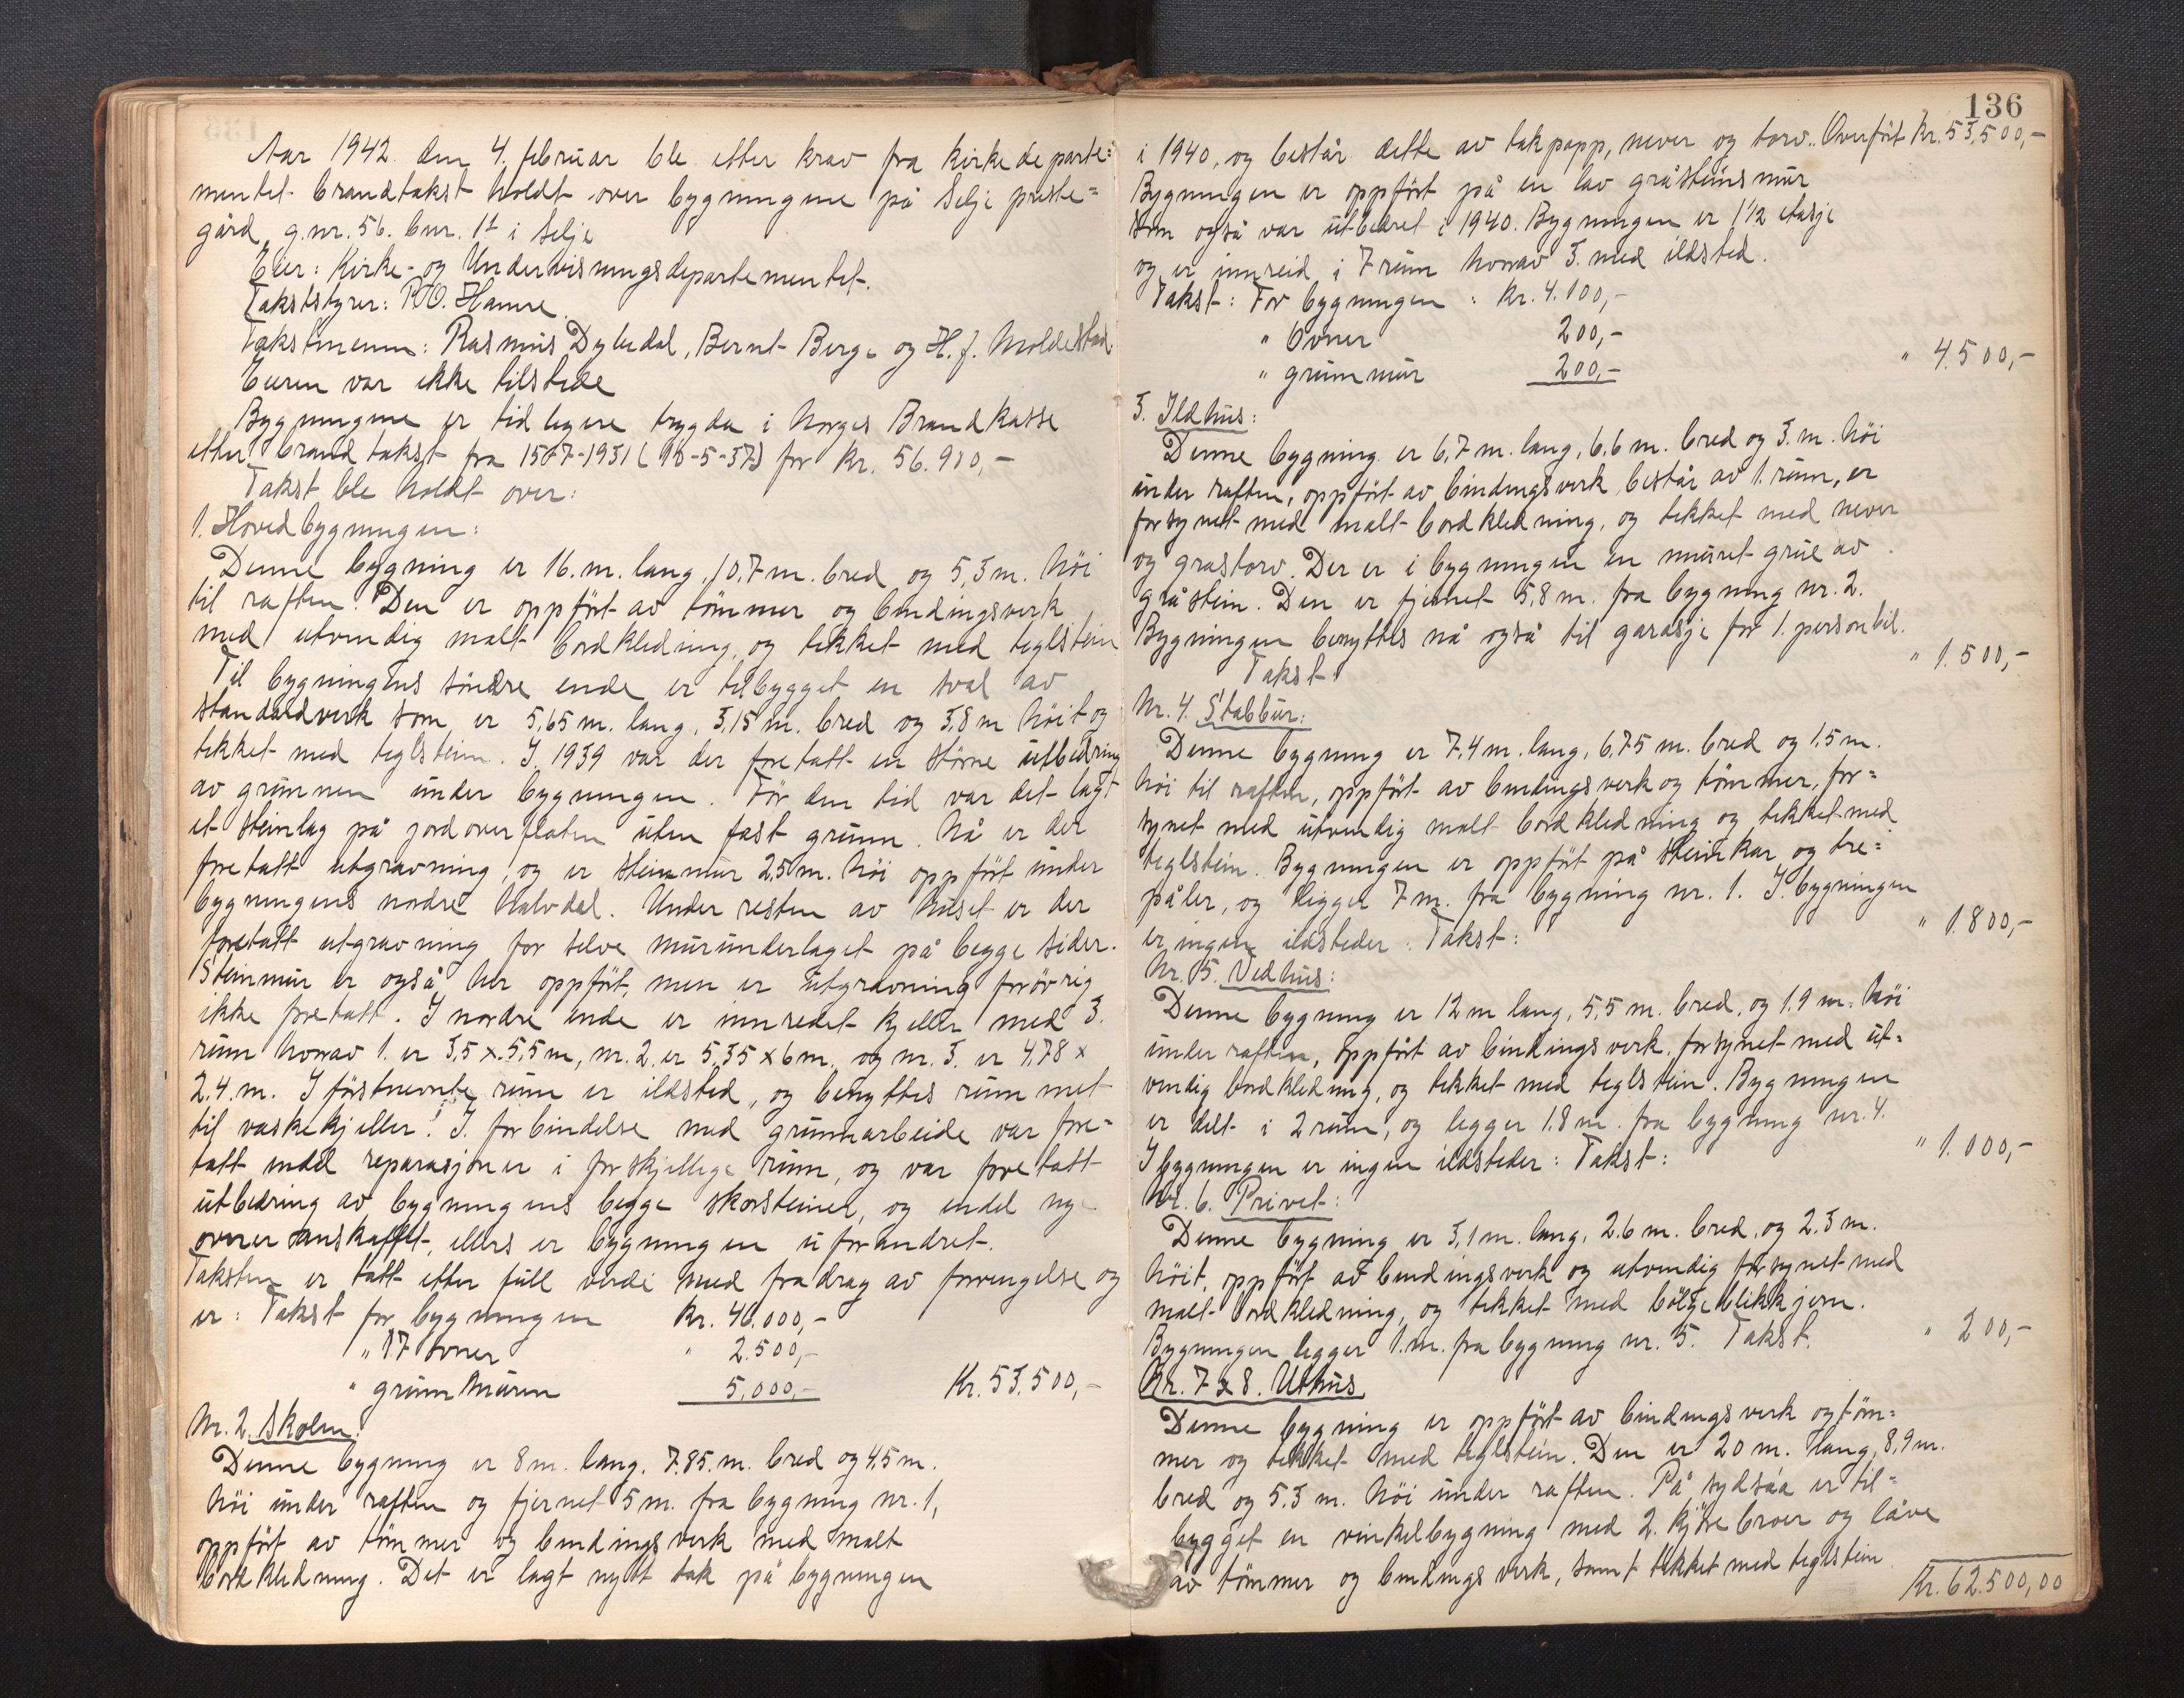 Aar 1942 den 4. februar ble etter krav fra kirkedeparte=
mentet brandtakst holdt over bygningene på Selje preste=
gård, g.nr. 56. bnr. 1 i Selje
Eier: Kirke- og Undervisningsdepartementet.
Takststyrer: R. O. Hamre.
Takstmenn: Rasmus Dybedal, Bernt Berge og H. J. Moldestad
Eieren var ikke tilstede
Bygningene er tidligere trygda i Norges Brandkasse
etter brand takst fra 1931 for kr. 56.900,-
Takst ble holdt over:
1. Hovedbygningen:
Denne bygning er 16. m. lang, 10,7 m. bred og 5,3 m. høi
til raften. Den er oppført av tømmer og bindingsverk,
med utvendig malt bordkledning, og tekket med teglstein
Til bygningens søndre ende er tilbygget en sval av
standardverk som er 5,65 m. lang, 3,15 m. bred og 3,8 m høit og
tekket med teglstein. I 1939 var der foretatt en større utbedring
av grunnen under bygningen. Før den tid var det lagt
et steinlag på jordoverflaten uten fast grunn. Nå er der
foretatt utgravning, og er steinmur 2,5 m. høi oppført under
bygningens nordre halvdel. Under resten av huset er der
foretatt utgravning for selve murunderlaget på begge sider.
Steinmur er også her oppført, men er utgravning forøvrig
ikke foretatt. I nordre ende er innredet kjeller med 3.
rum hvorav 1. er 3,5 x 5,5 m, nr. 2. er 5,35 x 6 m. og nr. 3. er 4,78 x
2.4. m. I førstnevnte rum er ildsted, og benyttes rummet
til vaskekjeller. I forbindelse med grunnarbeide var fore=
tatt endel reparasjoner i forskjellige rum, og var foretatt
utbedring av bygningens begge skorsteiner, og endel nye
ovner anskaffet, ellers er bygningen uforandret.
Taksten er tatt etter full verdi med fradrag av forringelse og
er: Takst for bygningen kr. 46.000,-
" 17 ovner " 2.500,-
" grunnmuren 5.000,- Kr. 53.500,-
Nr. 2. Skolen.
Denne bygning er 8 m. lang. 7.85. m. bred og 4,5 m.
høi under raften og fjernet 5 m. fra bygning nr. 1,
oppført av tømmer og bindingsverk med malt
bordkledning. Det er lagt nytt tak på bygningen
136
i 1940, og består dette av takpapp, never og torv. Overført Kr. 53,500,-
Bygningen er oppført på en lav gråsteinsmur
som også var utbedret i 1940. Bygningen er 1 1/2 etasje
og er innreid i 7 rum hvorav 3. med ildsted.
Takst: For bygningen : kr. 4.100,-
" Ovner 200,-
" grunnmur 200,- " 4.500,-
3. Ildhus:
Denne bygning er 6,7 m. lang, 6,6 m. bred og 3. m. høi
under raften, oppført av bindingsverk, består av 1. rum, er
forsynet med malt bordkledning, og tekket med never
og grastorv. Der er i bygningen en muret grue av
gråstein. Den er fjernet 5,8 m. fra bygning nr. 2.
Bygningen benyttes nå også til garasje for 1. personbil.
Takst " 1.500,-
Nr. 4. Stabbur:
Denne bygning er 7,4 m. lang, 6,75 m. bred og 1,5 m.
høi til raften, oppført av bindingsverk og tømmer, for=
synet med utvendig malt bordkledning og tekket med
teglstein. Bygningen er oppført på steinkar og tre=
påler, og ligger 7 m. fra bygning nr. 1. I bygningen
er ingen ildsteder. Takst: " 1.800,-
Nr. 5. Vedhus:
Denne bygning er 12 m lang, 5,5 m. bred, og 1,9 m. høi
under raften, oppført av bindingsverk, forsynet med ut=
vendig bordkledning, og tekket med teglstein. Bygningen
er delt i 2 rum, og ligger 1,8 m. fra bygning nr. 4.
I bygningen er ingen ildsteder: Takst: " 1.000,-
Nr. 6. Privet:
Denne bygning er 3,1 m. lang, 2,6 m. bred, og 2.3 m.
høit, oppført av bindingsverk og utvendig forsynet med
malt bordkledning, og tekket med bølgeblikkjern.
Bygningen ligger 1. m. fra bygning nr. 5. Takst. " 200,-
Nr. 7 x 8. Uthus
Denne bygning er oppført av bindingsverk og tøm=
mer og tekket med teglstein. Den er 20 m. lang, 8,9 m.
bred og 5.3 m. høi under raften. På sydsida er til=
bygget en vinkelbygning med 2. kjørebroer og låve
av tømmer og bindingsverk, samt tekket med teglstein
Kr. 62.500,00